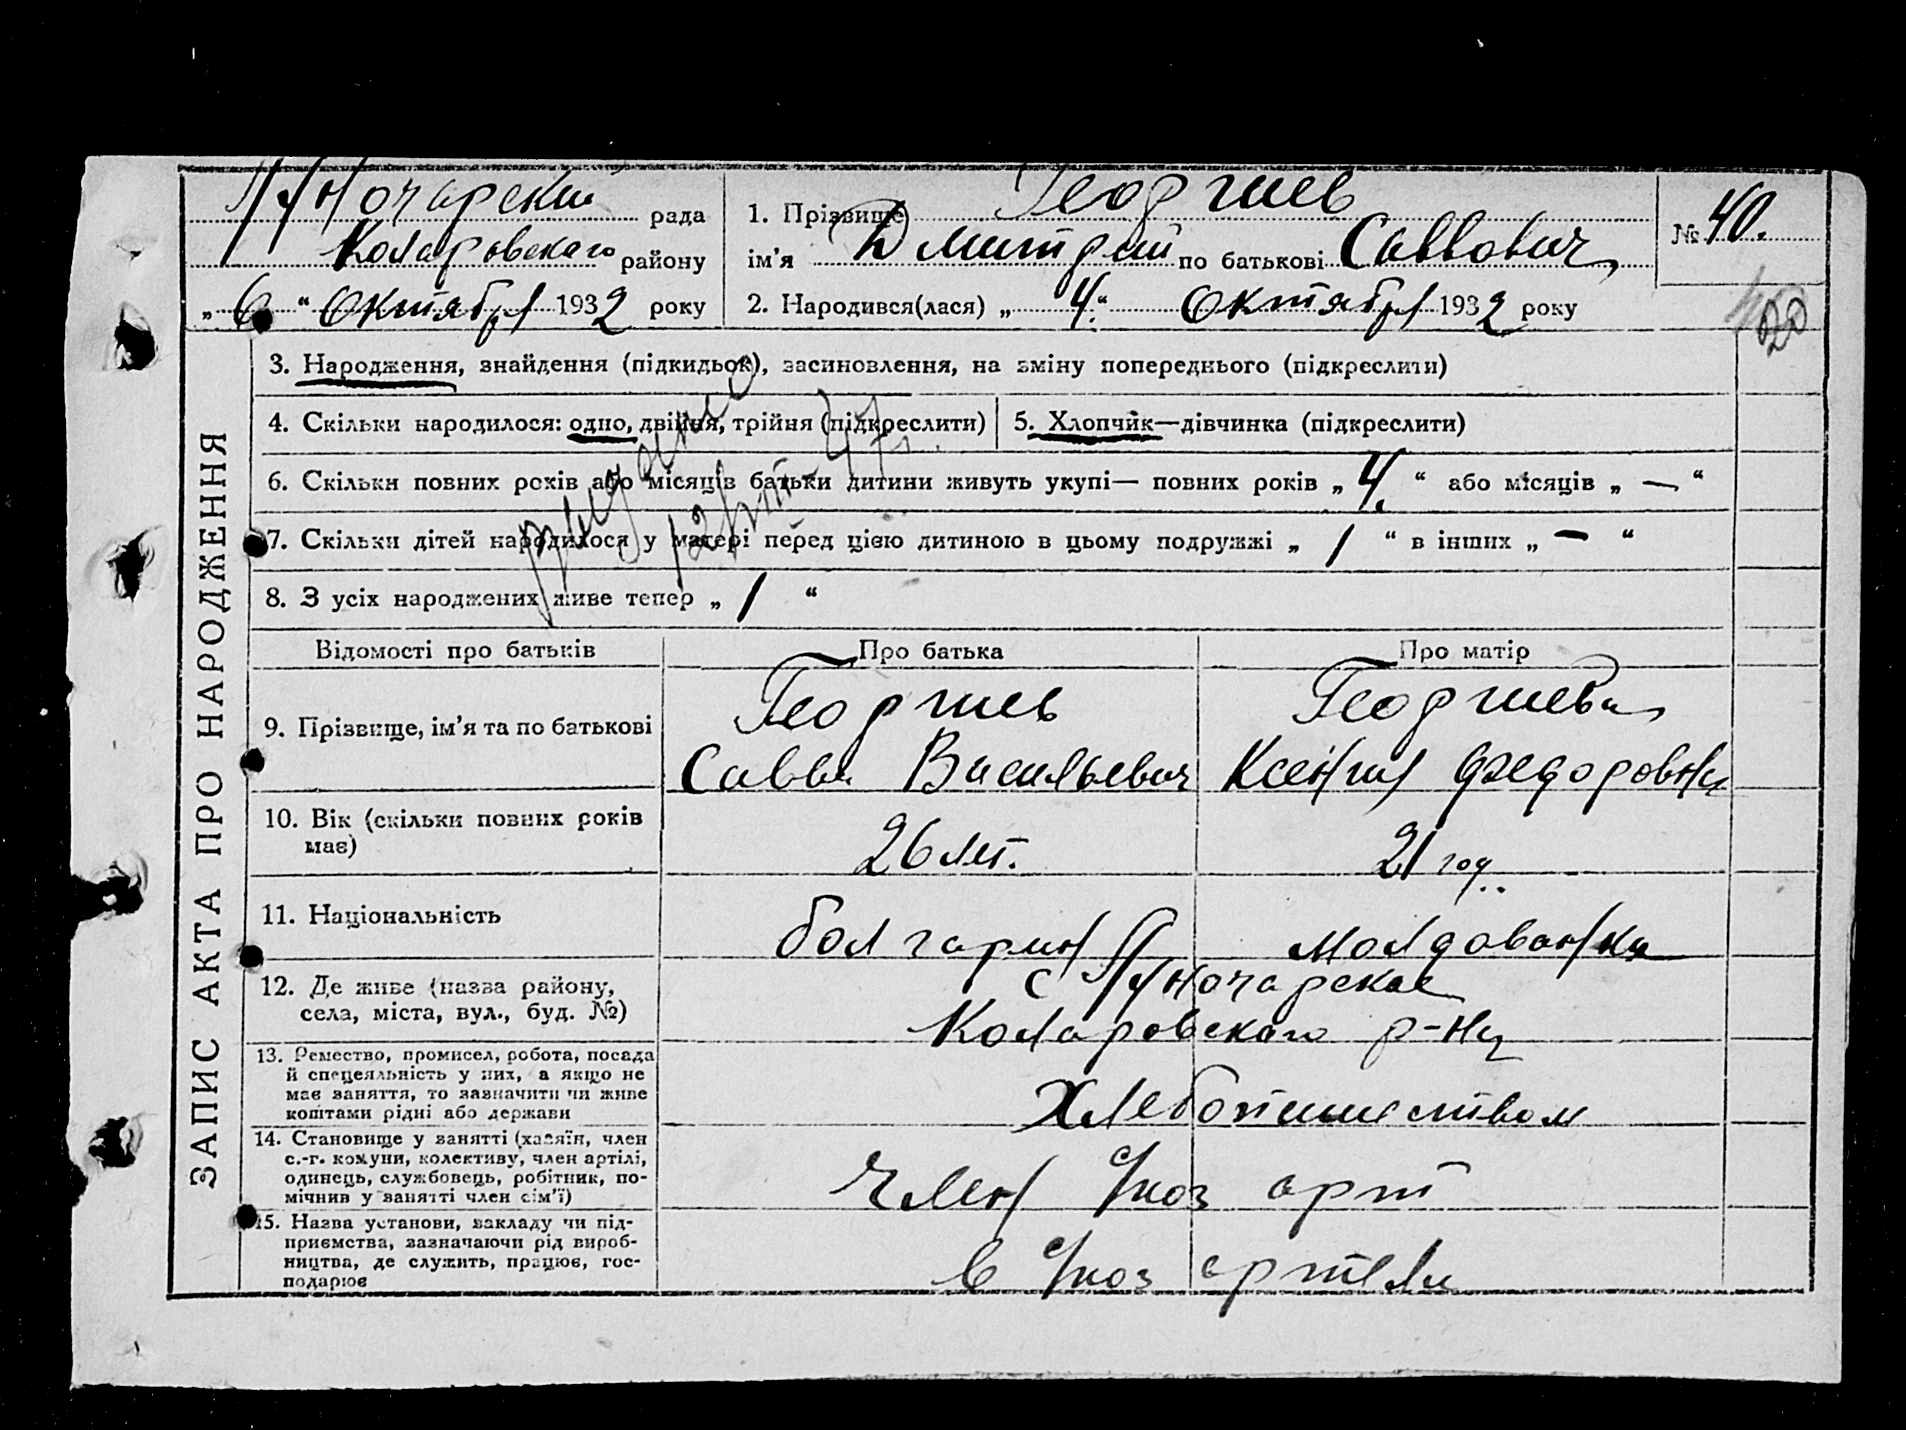 Луночарский рада
Коларовского району
„ 6 “ Октября 1932 року
1. Прізвище Георгиев
ім’я Дмитрий по батькові Саввович
2. Народився(лася) „ 4. “ Октября 1932 року
№ 40.
20
3. Народження, знайдення (підкидьок), засиновлення, на зміну попереднього (підкреслити)
4. Скільки народилося: одно, двійня, трійня (підкреслити)
5. Хлопчик—дівчинка (підкреслити)
6. Скільки повних років або місяців батьки дитини живуть укупі— повних років „ 4. “ або місяців „ — “
7. Скільки дітей народилося у матері перед цією дитиною в цьому подружжі „ 1 “ в інших „ — “
8. З усіх народжених живе тепер „ 1 “
Відомості про батьків
Про батька
Про матір
9. Прізвище, ім’я та по батькові
Георгиев
Савва Васильевич
Георгиева
Ксения Федоровна
10. Вік (скільки повних років
має)
26 лет.
21 год.
11. Національність
болгарин
молдованка
12. Де живе (назва району,
села, міста, вул., буд. №)
с Луночарское
Коларовского р-на
13. Ремество, промисел, робота, посада
й спецеяльність у них, а якщо не
має заняття, то зазначити чи живе
коштами рідні або держави
Хлебопашеством
14. Становище у занятті (хазяїн, член
с.-г. комуни, колективу, член артілі,
одинець, службовець, робітник, по-
мічнив у занятті член сім’ї)
член с/хоз арт
15. Назва установи, закладу чи під-
приємства, зазначаючи рід вироб-
ництва, де служить, працює, гос-
подарює
в с/хоз артели
ЗАПИС АКТА ПРО НАРОДЖЕННЯ